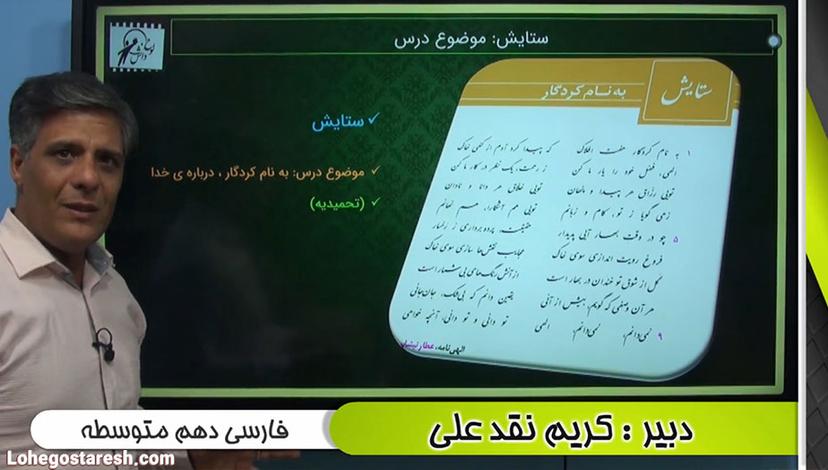 ستایش: موضوع درس
لوح دانش
ستایش
به نام کردگار
ستایش
موضوع درس: به نام کردگار ، درباره ی خدا
(تحمیدیه)
۱ به نام کردگار هفت افلاک که پیدا کرد آدم از کفی خاک
الهی، فضل خود را یار ما کن ز رحمت، یک نظر در کار ما کن
تویی رزاق هر پیدا و پنهان تویی خلاق هر دانا و نادان
زهی گویا ز تو، کام و زبانم تویی هم آشکارا، هم نهانم
۵ چو در وقت بهار آیی پدیدار حقیقت، پرده برداری ز رخسار
فروغ رویت اندازی سوی خاک عجایب نقش‌ها سازی سوی خاک
گل از شوق تو خندان در بهار است از آنش رنگ‌های بی‌شمار است
هر آن وصفی که گویم، بیش از آنی یقین دانم که بی‌شک، جان جانی
۹ نمی‌دانم، نمی‌دانم، الهی تو دانی و تو دانی، آنچه خواهی
الهی‌نامه، عطار نیشابوری
دبیر : کریم نقد علی
فارسی دهم متوسطه
Lohegostaresh.com